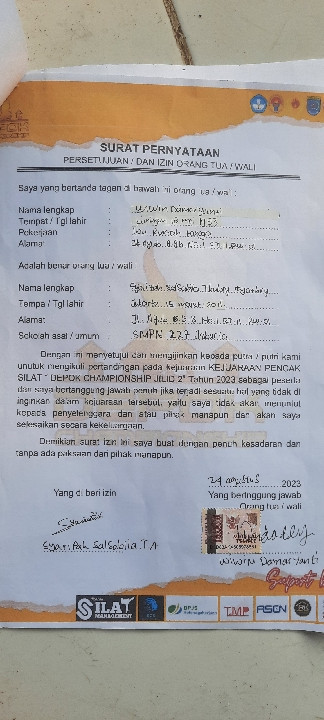 SURAT PERNYATAAN
PERSETUJUAN / DAN IZIN ORANG TUA / WALI
Saya yang bertanda tagan di bawah ini orang tua / wali :
Nama lengkap : Wiwin Damaryanti
Tempat / Tgl lahir :
Pekerjaan : Ibu Rumah Tangga
Alamat :
Adalah benar orang tua / wali
Nama lengkap : Syarifah Salsabila
Tempa / Tgl lahir : Jakarta 15 maret
Alamat : Jl.
Sekolah asal / umum : SMPN 227 Jakarta
Dengan ini menyetujui dan mengijinkan kepada putra / putri kami
unutuk mengikuti pertandingan pada kejuaraan KEJUARAAN PENCAK
SILAT " DEPOK CHAMPIONSHIP JILID 2" Tahun 2023 sebagai peserta
dan saya bertanggung jawab penuh jika terjadi sesuatu hal yang tidak di
inginkan dalam kejuaraan tersebut, yaitu saya tidak akan menuntut
kepada penyelenggara dan atau pihak manapun dan akan saya
selesaikan secara kekeluargaan.
Demikian surat izin Ini saya buat dengan penuh kesadaran dan
tanpa ada paksaan dari pihak manapun.
24 agustus 2023
Yang di beri izin
Yang bertnggung jawab
Orang tua / wali
Syarifah Salsabila T.A
Wiwin Damaryanti
SILAT
MANAGEMENT
BPJS
Ketenagakerjaan
TMP